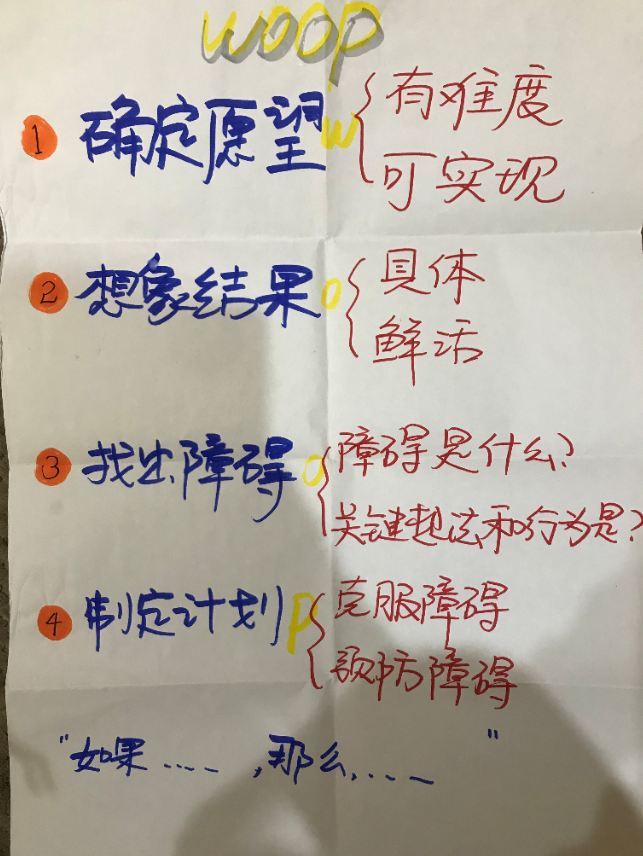 WOOP
1 确定愿望 W { 有难度
可实现
2 想象结果 O { 具体
鲜活
3 找出障碍 O { 障碍是什么?
关键想法和行为是?
4 制定计划 P { 克服障碍
预防障碍
"如果……,那么……"